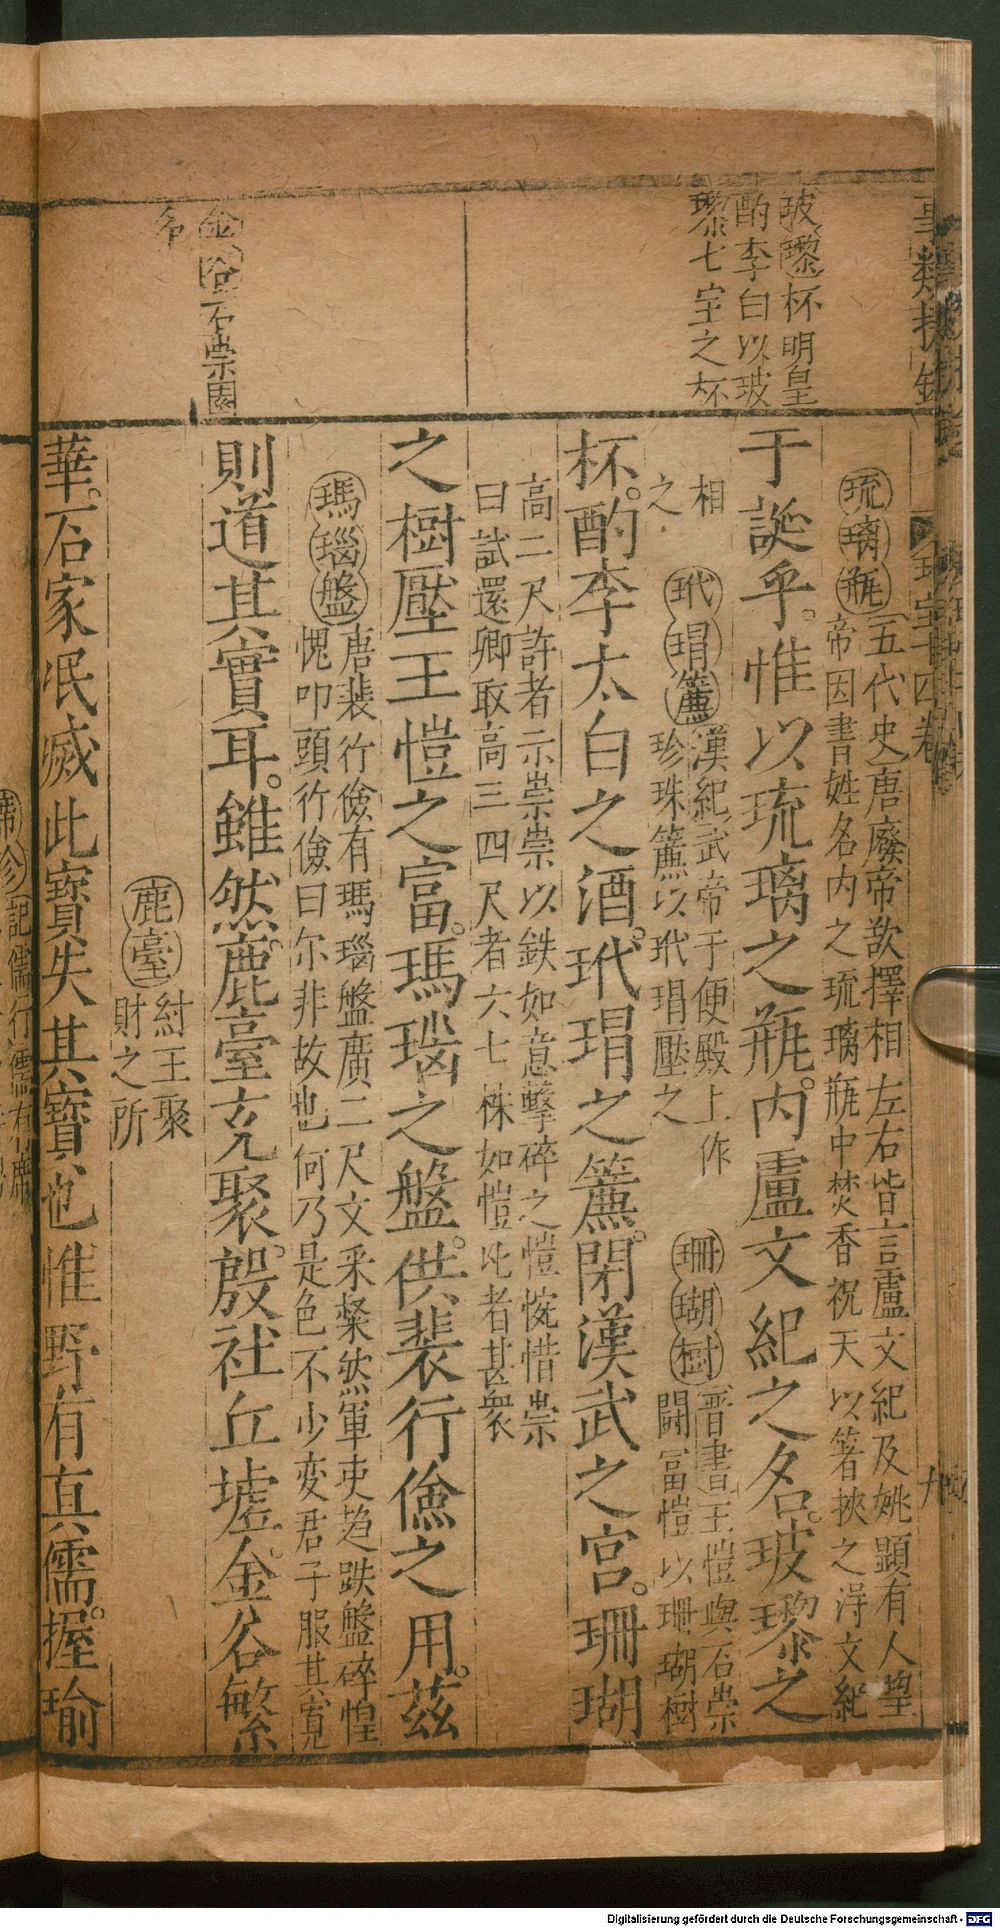 玻瓈杯明皇
酌李白以玻
瓈七宝之杯
金谷石崇園
名
琉璃瓶〔五代史〕唐廢帝欲擇相左右皆言盧文紀及姚顗有人望
帝因書姓名内之琉璃瓶中焚香祝天以筯挾之淂文紀
于誕乎。惟以琉璃之瓶。内盧文紀之名。玻瓈之
相
之
玳瑁簾〔漢紀〕武帝于便殿上作
珍珠簾以玳瑁壓之
珊瑚樹〔晋書〕王愷與石崇
闘冨愷以珊瑚樹
杯。酌李太白之酒。玳瑁之簾。閉漢武之宮。珊瑚
高二尺許者示崇崇以鉄如意擊碎之愷惋惜崇
曰試還卿取高三四尺者六七株如愷此者甚衆
之樹壓王愷之富。瑪瑙之盤。供裴行儉之用。茲
瑪瑙盤唐裴行儉有瑪瑙盤廣二尺文采粲然軍吏趋跌盤碎惶
愧叩頭行儉曰尔非故也何乃是色不少变君子服其寬
則道其實耳。雖然。鹿臺充聚。殷社丘墟。金谷繁
鹿臺紂王聚
財之所
華。石家泯滅此寶失其寶也惟野有真儒。握瑜
席珍〔記儒行〕儒有席
Digitalisierung gefördert durch die Deutsche Forschungsgemeinschaft - DFG